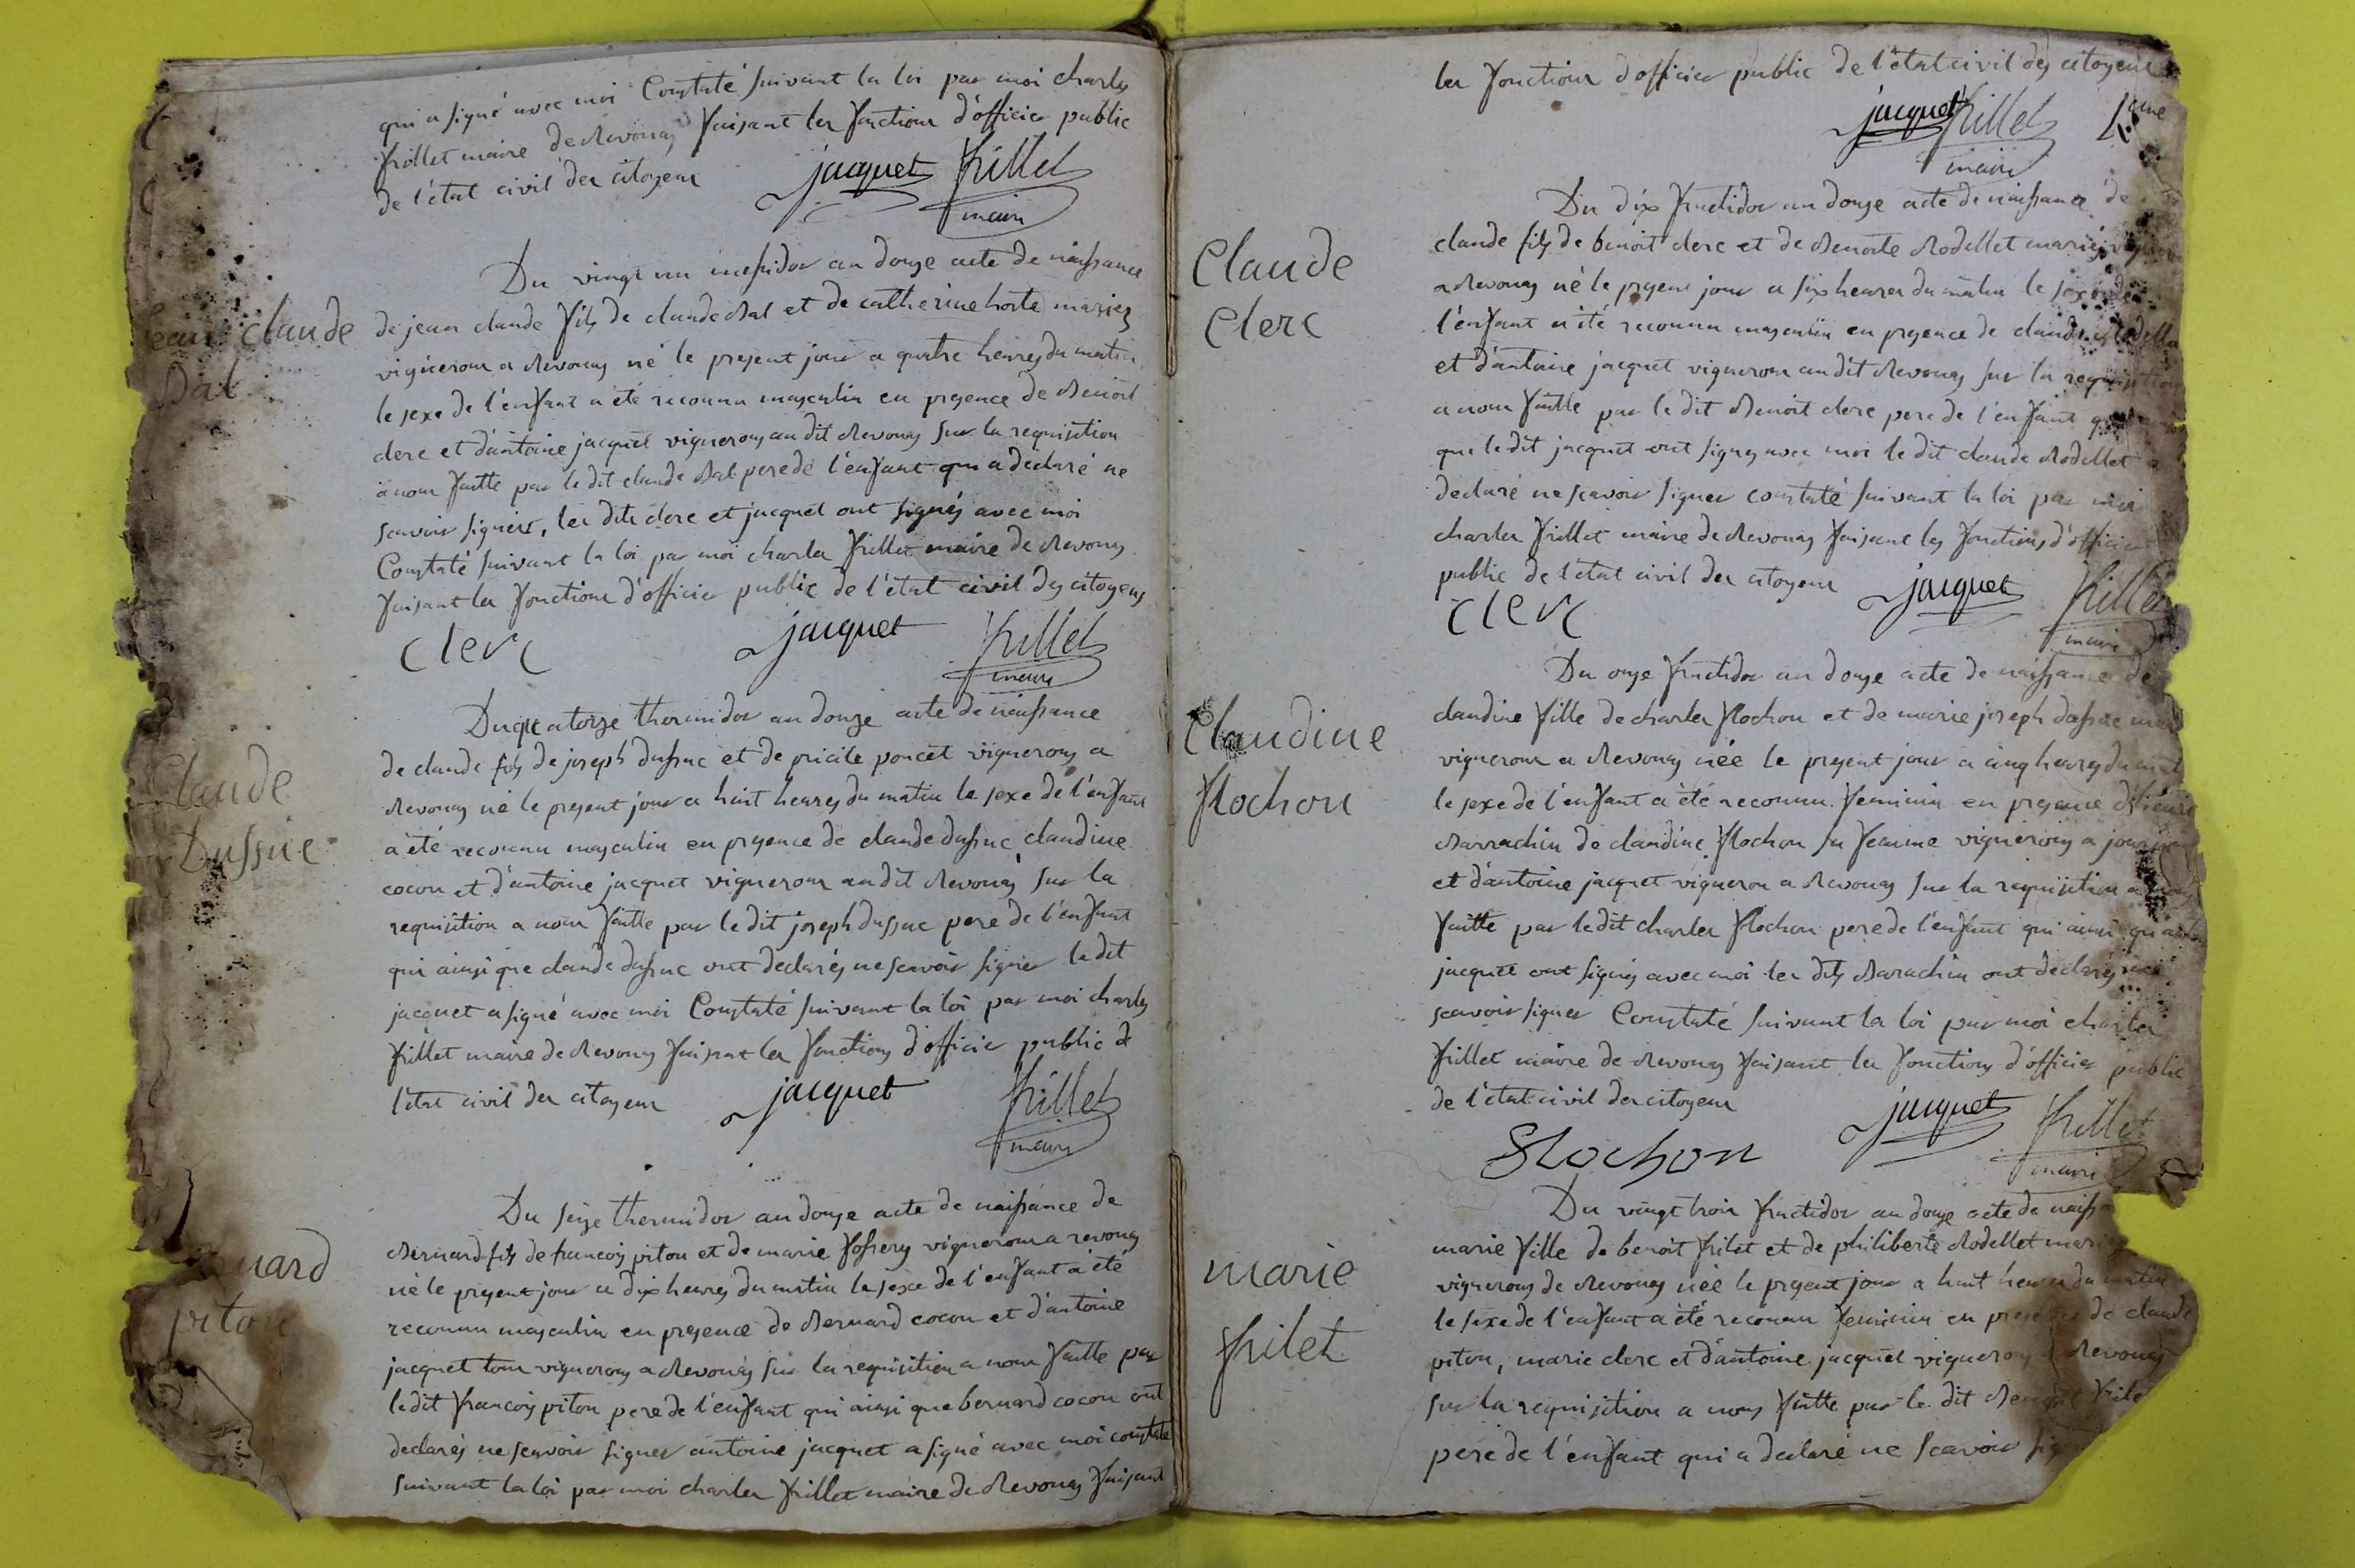 qui a signé avec moi Constaté suivant la loi par moi charles
frillet maire de Revonas faisant les fonctions d'officier public
de l'état civil des citoyens
jacquet frillet
maire
Du vingt un messidor an douze acte de naissance
jean claude
Dal
de jean claude fils de claude Dal et de catherine hoste mariés
vignerons a Revonas né le présent jour a quatre heures du matin
le sexe de l'enfant a été reconnu masculin en présence de Benoit
clerc et d'antoine jacquet vignerons au dit Revonas sur la requisition
a nous faitte par le dit claude Dal pere de l'enfant qui a déclaré ne
scavoir signer, les dits clerc et jacquet ont signés avec moi
Constaté suivant la loi par moi charles frillet maire de Revonas
faisant les fonctions d'officier public de l'état civil des citoyens
clerc jacquet frillet
maire
Du quatorze thermidor an douze acte de naissance
Claude
Dussuc
de claude fils de joseph dussuc et de poncet vignerons a
Revonas né le présent jour a huit heures du matin le sexe de l'enfant
a été reconnu masculin en présence de claude dussuc claudine
cocon et d'antoine jacquet vignerons au dit Revonas sur la
requisition a nous faitte par le dit joseph dussuc pere de l'enfant
qui ainsi que claude dussuc ont déclarés ne scavoir signer le dit
jacquet a signé avec moi Constaté suivant la loi par moi charles
frillet maire de Revonas faisant les fonctions d'officier public de
l'état civil des citoyens jacquet frillet
maire
Du seize thermidor an douze acte de naissance de
piton
Bernard fils de francois piton et de marie vignerons a revonas
né le présent jour a dix heures du matin le sexe de l'enfant a été
reconnu masculin en présence de Bernard cocon et d'antoine
jacquet tous vignerons a Revonas sur la requisition a nous faitte par
le dit francois piton pere de l'enfant qui ainsi que bernard cocon ont
declarés ne scavoir signer antoine jacquet a signé avec moi constaté
suivant la loi par moi charles frillet maire de Revonas faisant
les fonctions d'officier public de l'état civil des citoyens
jacquet frillet
maire
Du dix fructidor an douze acte de naissance de
Claude
Clerc
claude fils de benoit clerc et de Benoite Rodellet mariés
a Revonas né le présent jour a six heures du matin le sexe de
l'enfant a été reconnu masculin en présence de claude Rodellet
et d'antoine jacquet vignerons au dit Revonas sur la requisition
a nous faitte par le dit Benoit clerc pere de l'enfant
que le dit jacquet ont signés avec moi le dit claude Rodellet a
declaré ne scavoir signer constaté suivant la loi par moi
charles frillet maire de Revonas faisant les fonctions d'officier
public de l'état civil des citoyens jacquet frillet
clerc maire
Du onze fructidor an douze acte de naissance de
Claudine
flochon
claudine fille de charles flochon et de marie joseph
vignerons a Revonas née le présent jour a cinq heures du
le sexe de l'enfant a été reconnu feminin en présence
Barrachin de claudine flochon sa femme vignerons a
et d'antoine jacquet vigneron a Revonas sur la requisition a nous
faitte par le dit charles flochon pere de l'enfant qui ainsi
jacquet ont signés avec moi les dits Barachin ont declarés ne
scavoir signer Constaté suivant la loi par moi charles
frillet maire de Revonas faisant les fonctions d'officier public
de l'état civil des citoyens jacquet frillet
flochon maire
Du vingt trois fructidor an douze acte de
marie
frilet
marie fille de benoit frilet et de philiberte Rodellet
vignerons de Revonas née le présent jour a huit heures du matin
le sexe de l'enfant a été reconnu feminin en présence de claude
piton, marie clerc et d'antoine jacquet vignerons a Revonas
sur la requisition a nous faitte par le dit Benoit
pere de l'enfant qui a declaré ne scavoir